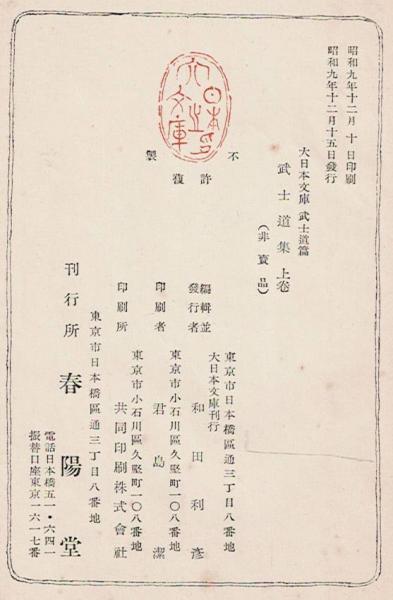 昭和九年十二月十日印刷
昭和九年十二月十五日發行
大日本文庫 武士道篇
武士道集 上卷
(非賣品)
不許複製
大日本文庫
編輯並發行者
東京市日本橋區通三丁目八番地
大日本文庫刊行
和田利彥
印刷者
東京市小石川區久堅町一〇八番地
君島潔
印刷所
東京市小石川區久堅町一〇八番地
共同印刷株式會社
東京市日本橋區通三丁目八番地
刊行所 春陽堂
電話日本橋五一・六四一
振替口座東京一六一七番